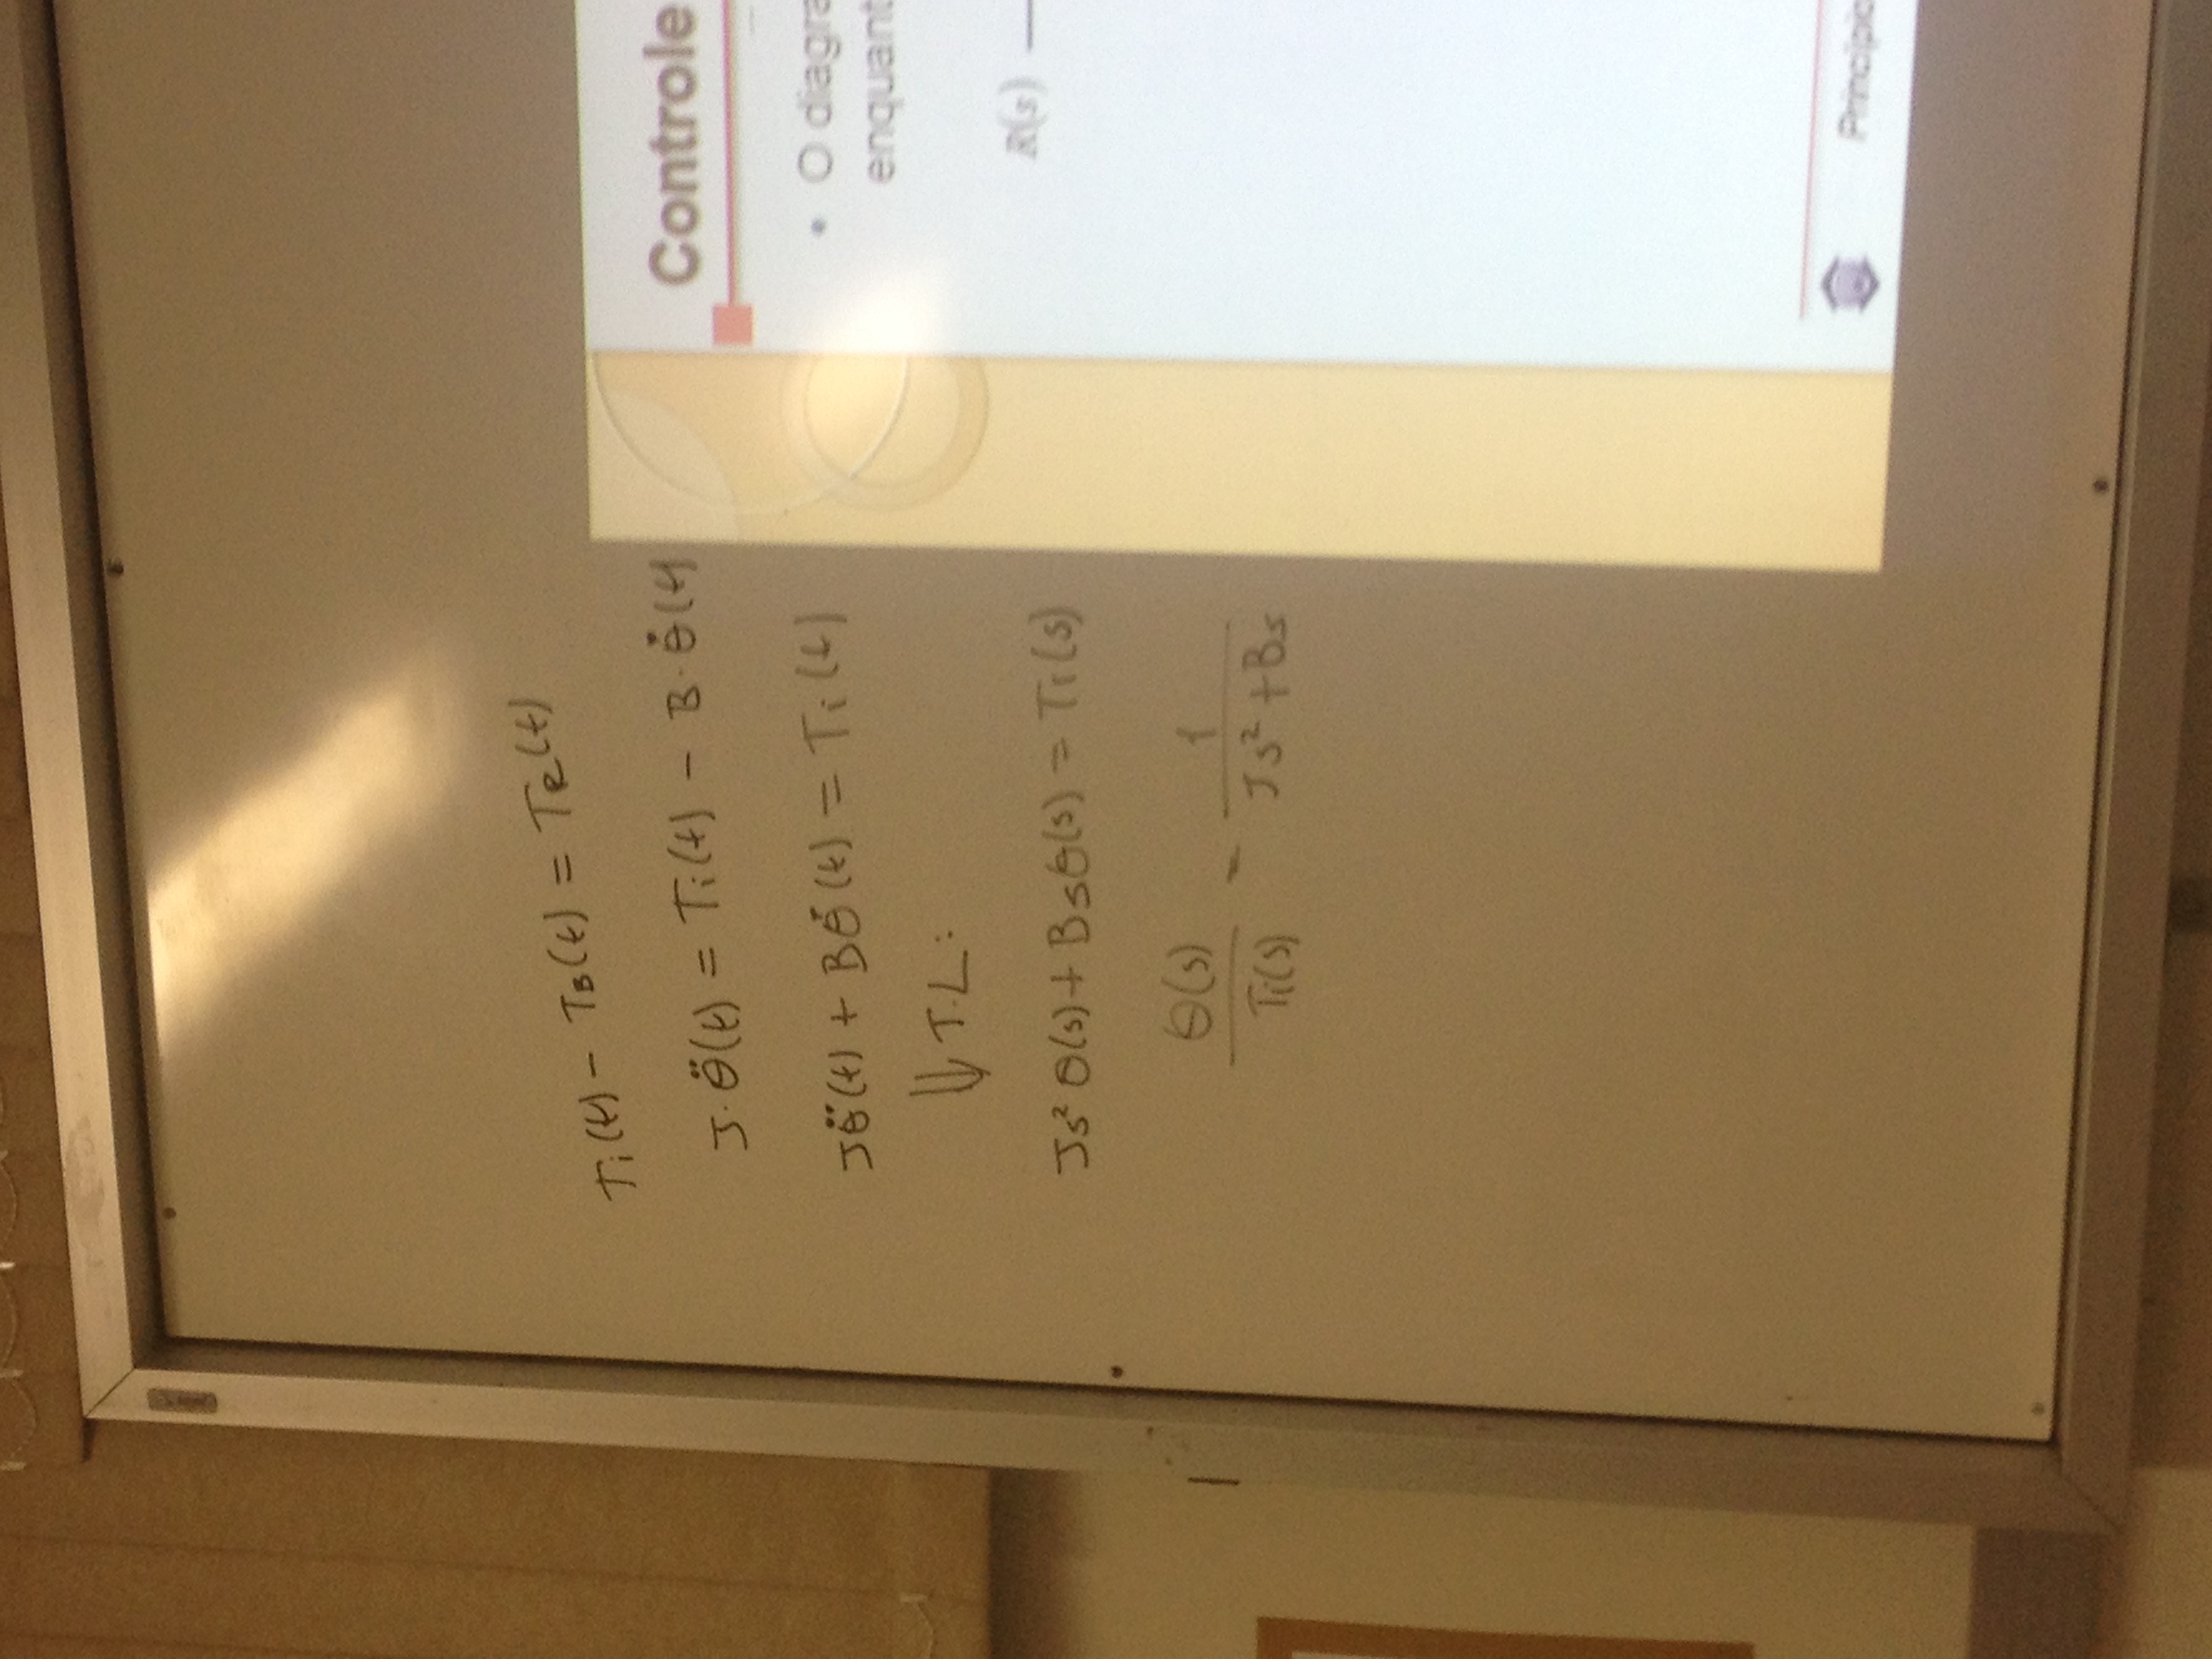 Ti(t) − TB(t) = TR(t)
J·θ̈(t) = Ti(t) − B·θ̇(t)
Jθ̈(t) + Bθ̇(t) = Ti(t)
⇓ T.L:
Js² θ(s) + Bsθ(s) = Ti(s)
θ(s)/Ti(s) = 1/(Js² + Bs)
Controle
• O diagra
enquant
R(s)
Princípio